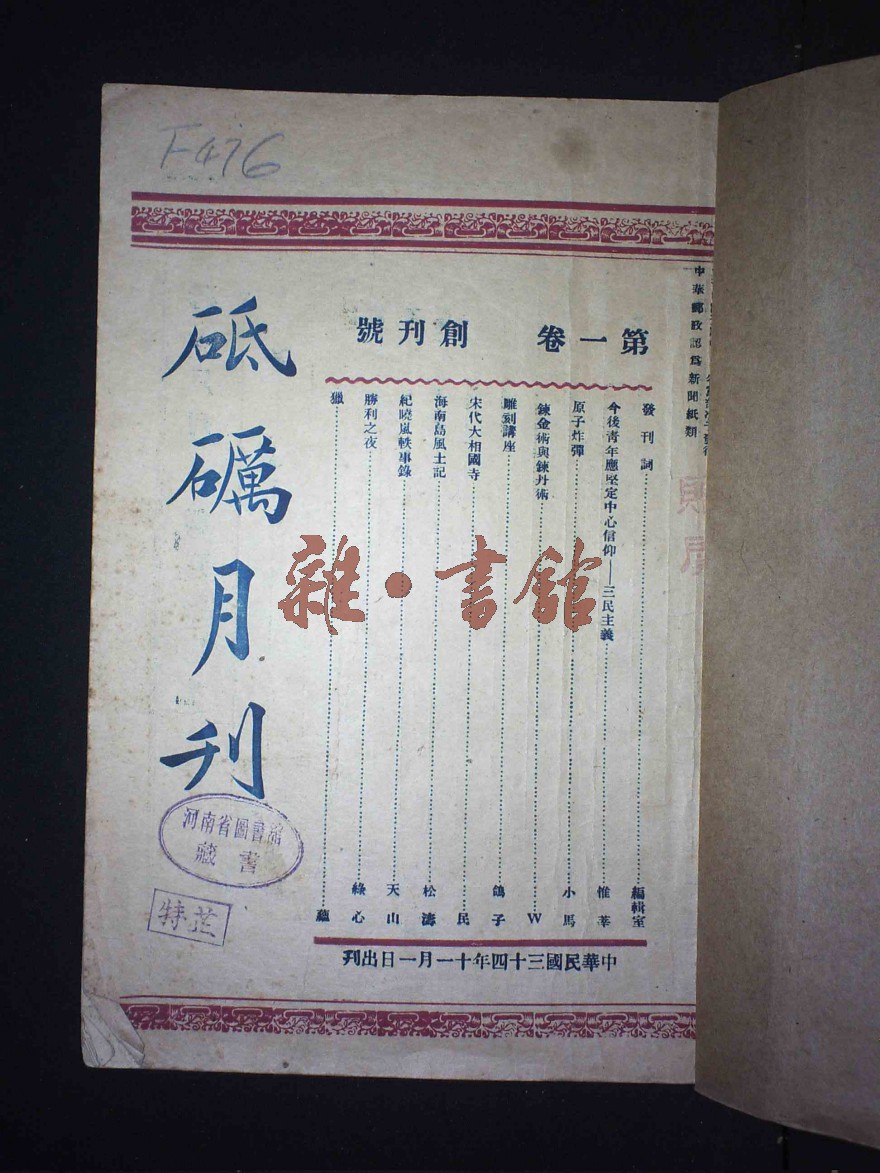 F476
中華郵政認爲新聞紙類
第一卷 創刊號
發刊詞 編輯室
今後青年應堅定中心信仰——三民主義 惟莘
原子炸彈 小馬
鍊金術與鍊丹術 W
雕刻講座 鴿子
宋代大相國寺 民
海南島風土記 松濤
紀曉嵐軼事錄 天山
勝利之夜 綠心
獵 蘊
中華民國三十四年十一月一日出刊
砥礪月刊
河南省圖書館
藏書
雜·書館